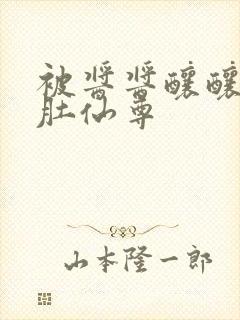 被酱酱酿酿
肚仙尊
山本隆一郎